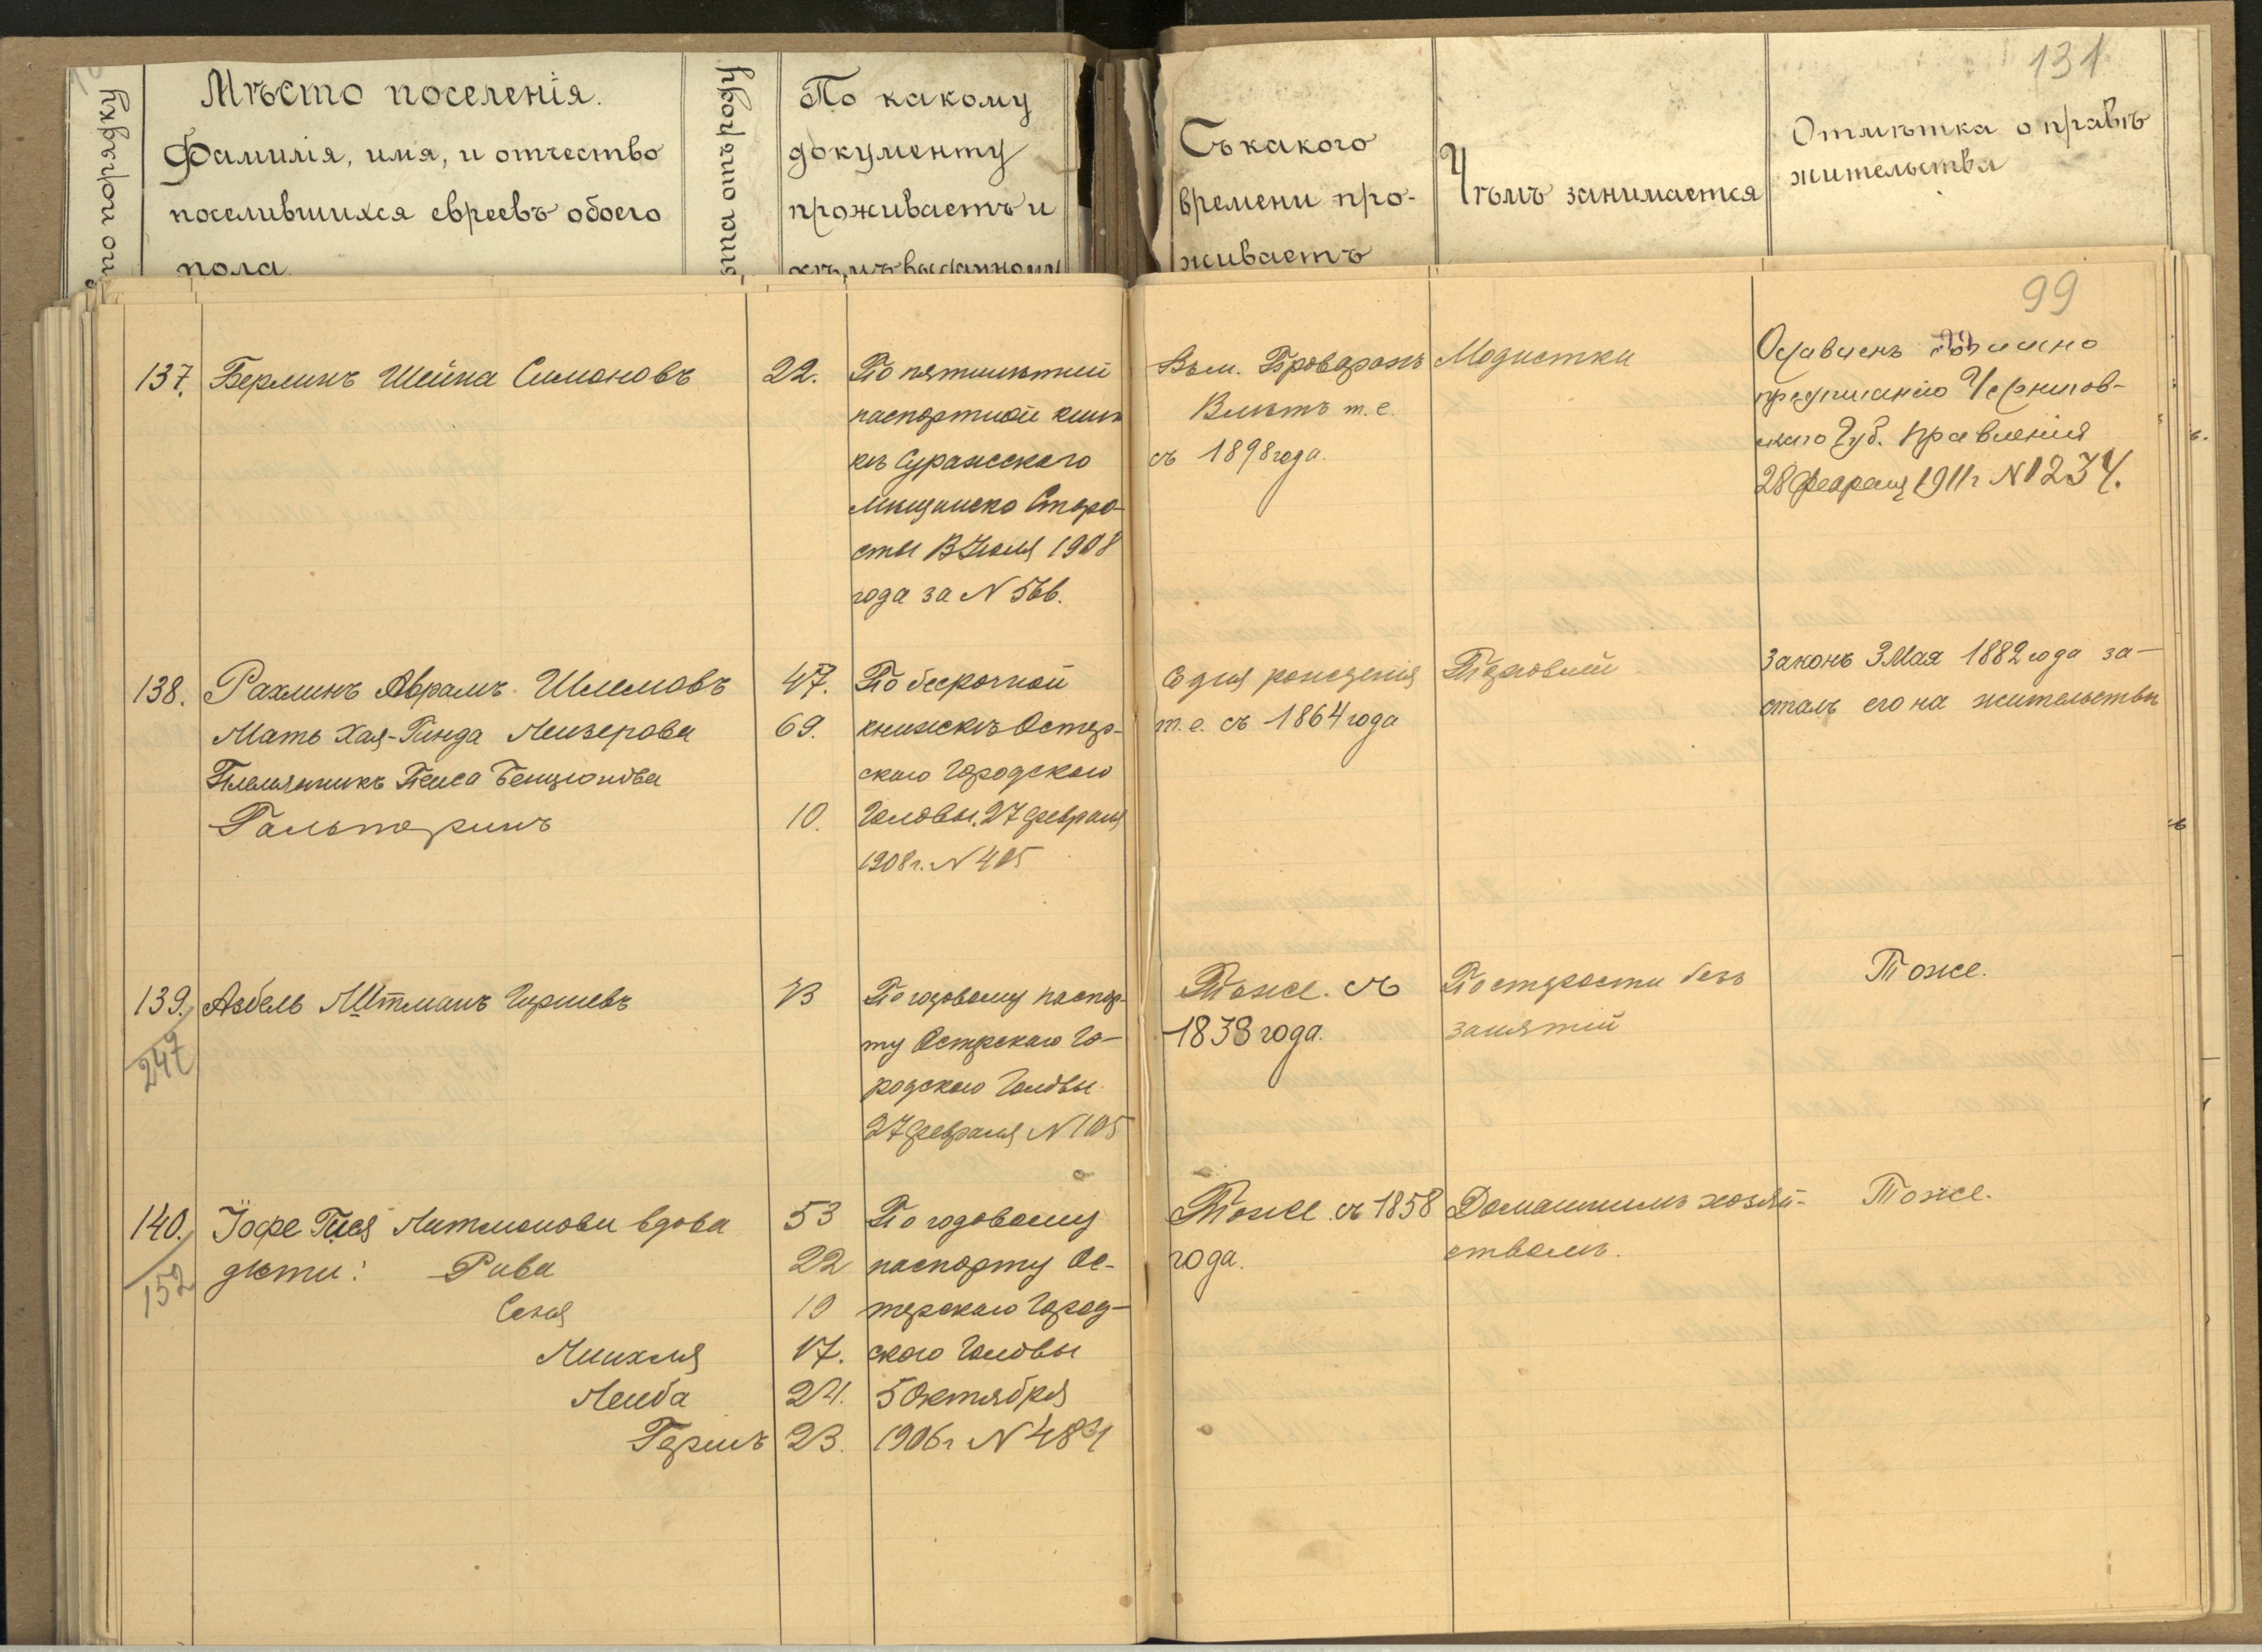 131
по порядку
Мѣсто поселенія.
Фамилія, имя, и отчество
поселившихся евреевъ обоего
пола
ѣта отъ роду
По какому
документу
проживаетъ и
кѣмъ выданному
Съ какого
времени про-
живаетъ
Чѣмъ занимается
Отмѣтка о правѣ
жительства
99
137.
Берлинъ Шейна Симоновъ
22.
По пятилѣтней
паспортной книж
кѣ Суражскаго
Мѣщанско Старо-
сты Іюля 1908
года за N
Въ м. Броварахъ
лѣтъ т.е.
съ 1898 года.
Модистка
Оставленъ согласно
предписанію Чернигов-
скаго Губ. Правленія
28 февраля 1911 г N 1234.
138.
Рахлинъ Абрамъ Шлемовъ
47.
Мать Хая-Гинда Лейзерова
69.
Племянникъ Бенціонова
Гальперинъ
10.
По безсрочной
книжкѣ Остер-
скаго Городского
Головы, 27 февраля
1908 г. N 405
Со дня рожденія
т.е. съ 1864 года
Торговлей
Законъ 3 Мая 1882 года за-
сталъ его на жительствѣ
139.
247
Азбель Гиршевъ
73
По годовому паспор-
ту Остерскаго Го-
родского Головы
27 февраля N 105
Тоже. съ
1838 года.
По старости безъ
занятій
Тоже.
140.
152
Іофе Гися вдова
53
дѣти: Рива
22
Сеня
19
17.
Лейба
24.
Гершъ
23.
По годовому
паспорту Ос-
терскаго Город-
ского Головы
5 Октября
1906 г N 4831
Тоже. съ 1858
года.
Домашнимъ хозяй-
ствомъ.
Тоже.